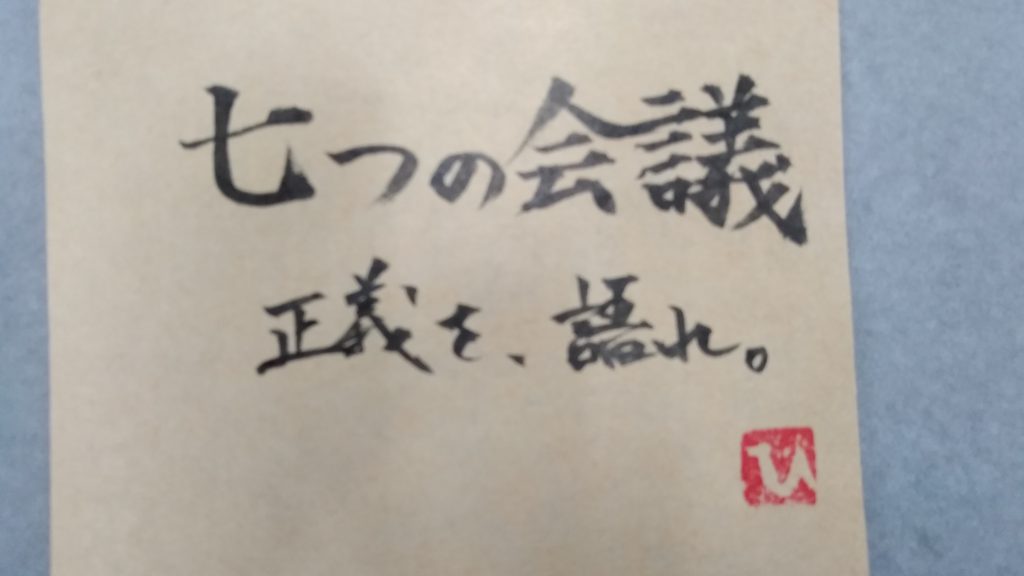 七つの会議
正義を、語れ。
ひ